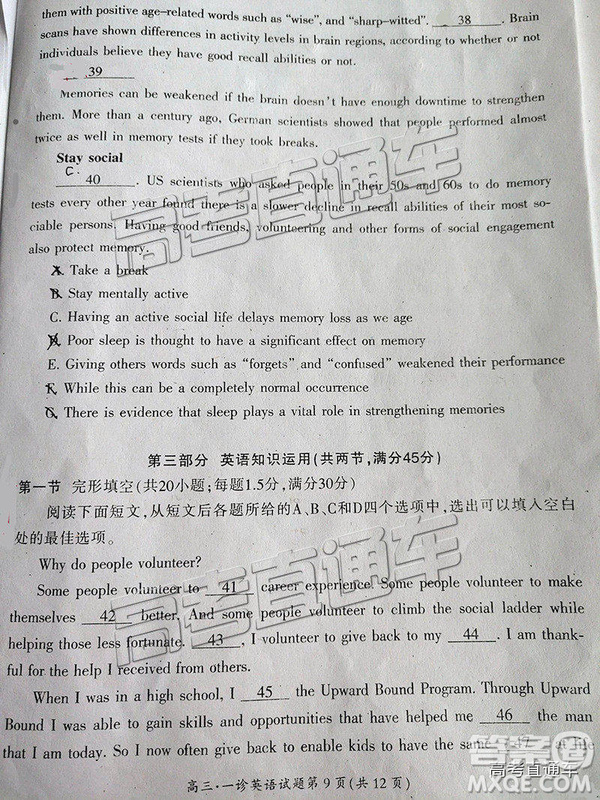 them with positive age-related words such as "wise", and "sharp-witted". 38 . Brain
scans have shown differences in activity levels in brain regions, according to whether or not
individuals believe they have good recall abilities or not.
39
Memories can be weakened if the brain doesn't have enough downtime to strengthen
them. More than a century ago, German scientists showed that people performed almost
twice as well in memory tests if they took breaks.
Stay social
C.
40 . US scientists who asked people in their 50s and 60s to do memory
tests every other year found there is a slower decline in recall abilities of their most so-
ciable persons. Having good friends, volunteering and other forms of social engagement
also protect memory.
A. Take a break
B. Stay mentally active
C. Having an active social life delays memory loss as we age
D. Poor sleep is thought to have a significant effect on memory
E. Giving others words such as "forgets" and "confused" weakened their performance
F. While this can be a completely normal occurrence
G. There is evidence that sleep plays a vital role in strengthening memories
第三部分 英语知识运用(共两节,满分45分)
第一节 完形填空(共20小题;每题1.5分,满分30分)
阅读下面短文,从短文后各题所给的A、B、C和D四个选项中,选出可以填入空白
处的最佳选项。
Why do people volunteer?
Some people volunteer to 41 career experience. Some people volunteer to make
themselves 42 better. And some people volunteer to climb the social ladder while
helping those less fortunate. 43 , I volunteer to give back to my 44 . I am thank-
ful for the help I received from others.
When I was in a high school, I 45 the Upward Bound Program. Through Upward
Bound I was able to gain skills and opportunities that have helped me 46 the man
that I am today. So I now often give back to enable kids to have the same 47 at life
高三·一诊英语试题第9页(共12页)
高考直通车
高考直通车
高考直通车
答案圈
MXQE.COM